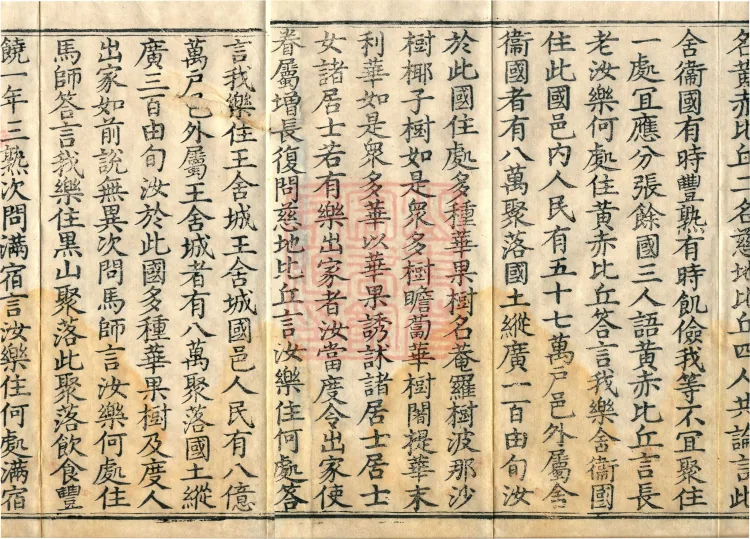 名黃赤比丘二名慈地比丘四人共論言此
舍衞國有時豐熟有時飢儉我等不宜聚住
一處宜應分張餘國三人語黃赤比丘言長
老汝樂何處住黃赤比丘答言我樂舍衞國
住此國邑內人民有五十七萬戶邑外屬舍
衞國者有八萬聚落國土縱廣一百由旬汝
於此國住處多種華果樹名菴羅樹波那沙
樹椰子樹如是衆多樹瞻蔔華樹闍提華末
利華如是衆多華以華果誘訹諸居士居士
女諸居士若有樂出家者汝當度令出家使
眷屬增長復問慈地比丘言汝樂住何處答
言我樂住王舍城王舍城國邑人民有八億
萬戶邑外屬王舍城者有八萬聚落國土縱
廣三百由旬汝於此國多種華果樹及度人
出家如前說無異次問馬師言汝樂何處住
馬師答言我樂住黑山聚落此聚落飲食豐
饒一年三熟次問滿宿言汝樂住何處滿宿